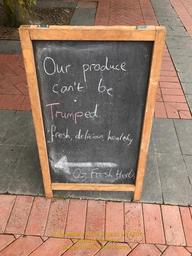 Our produce
can't be
Trumped.
fresh, delicious, healthy
Oz Fresh Here